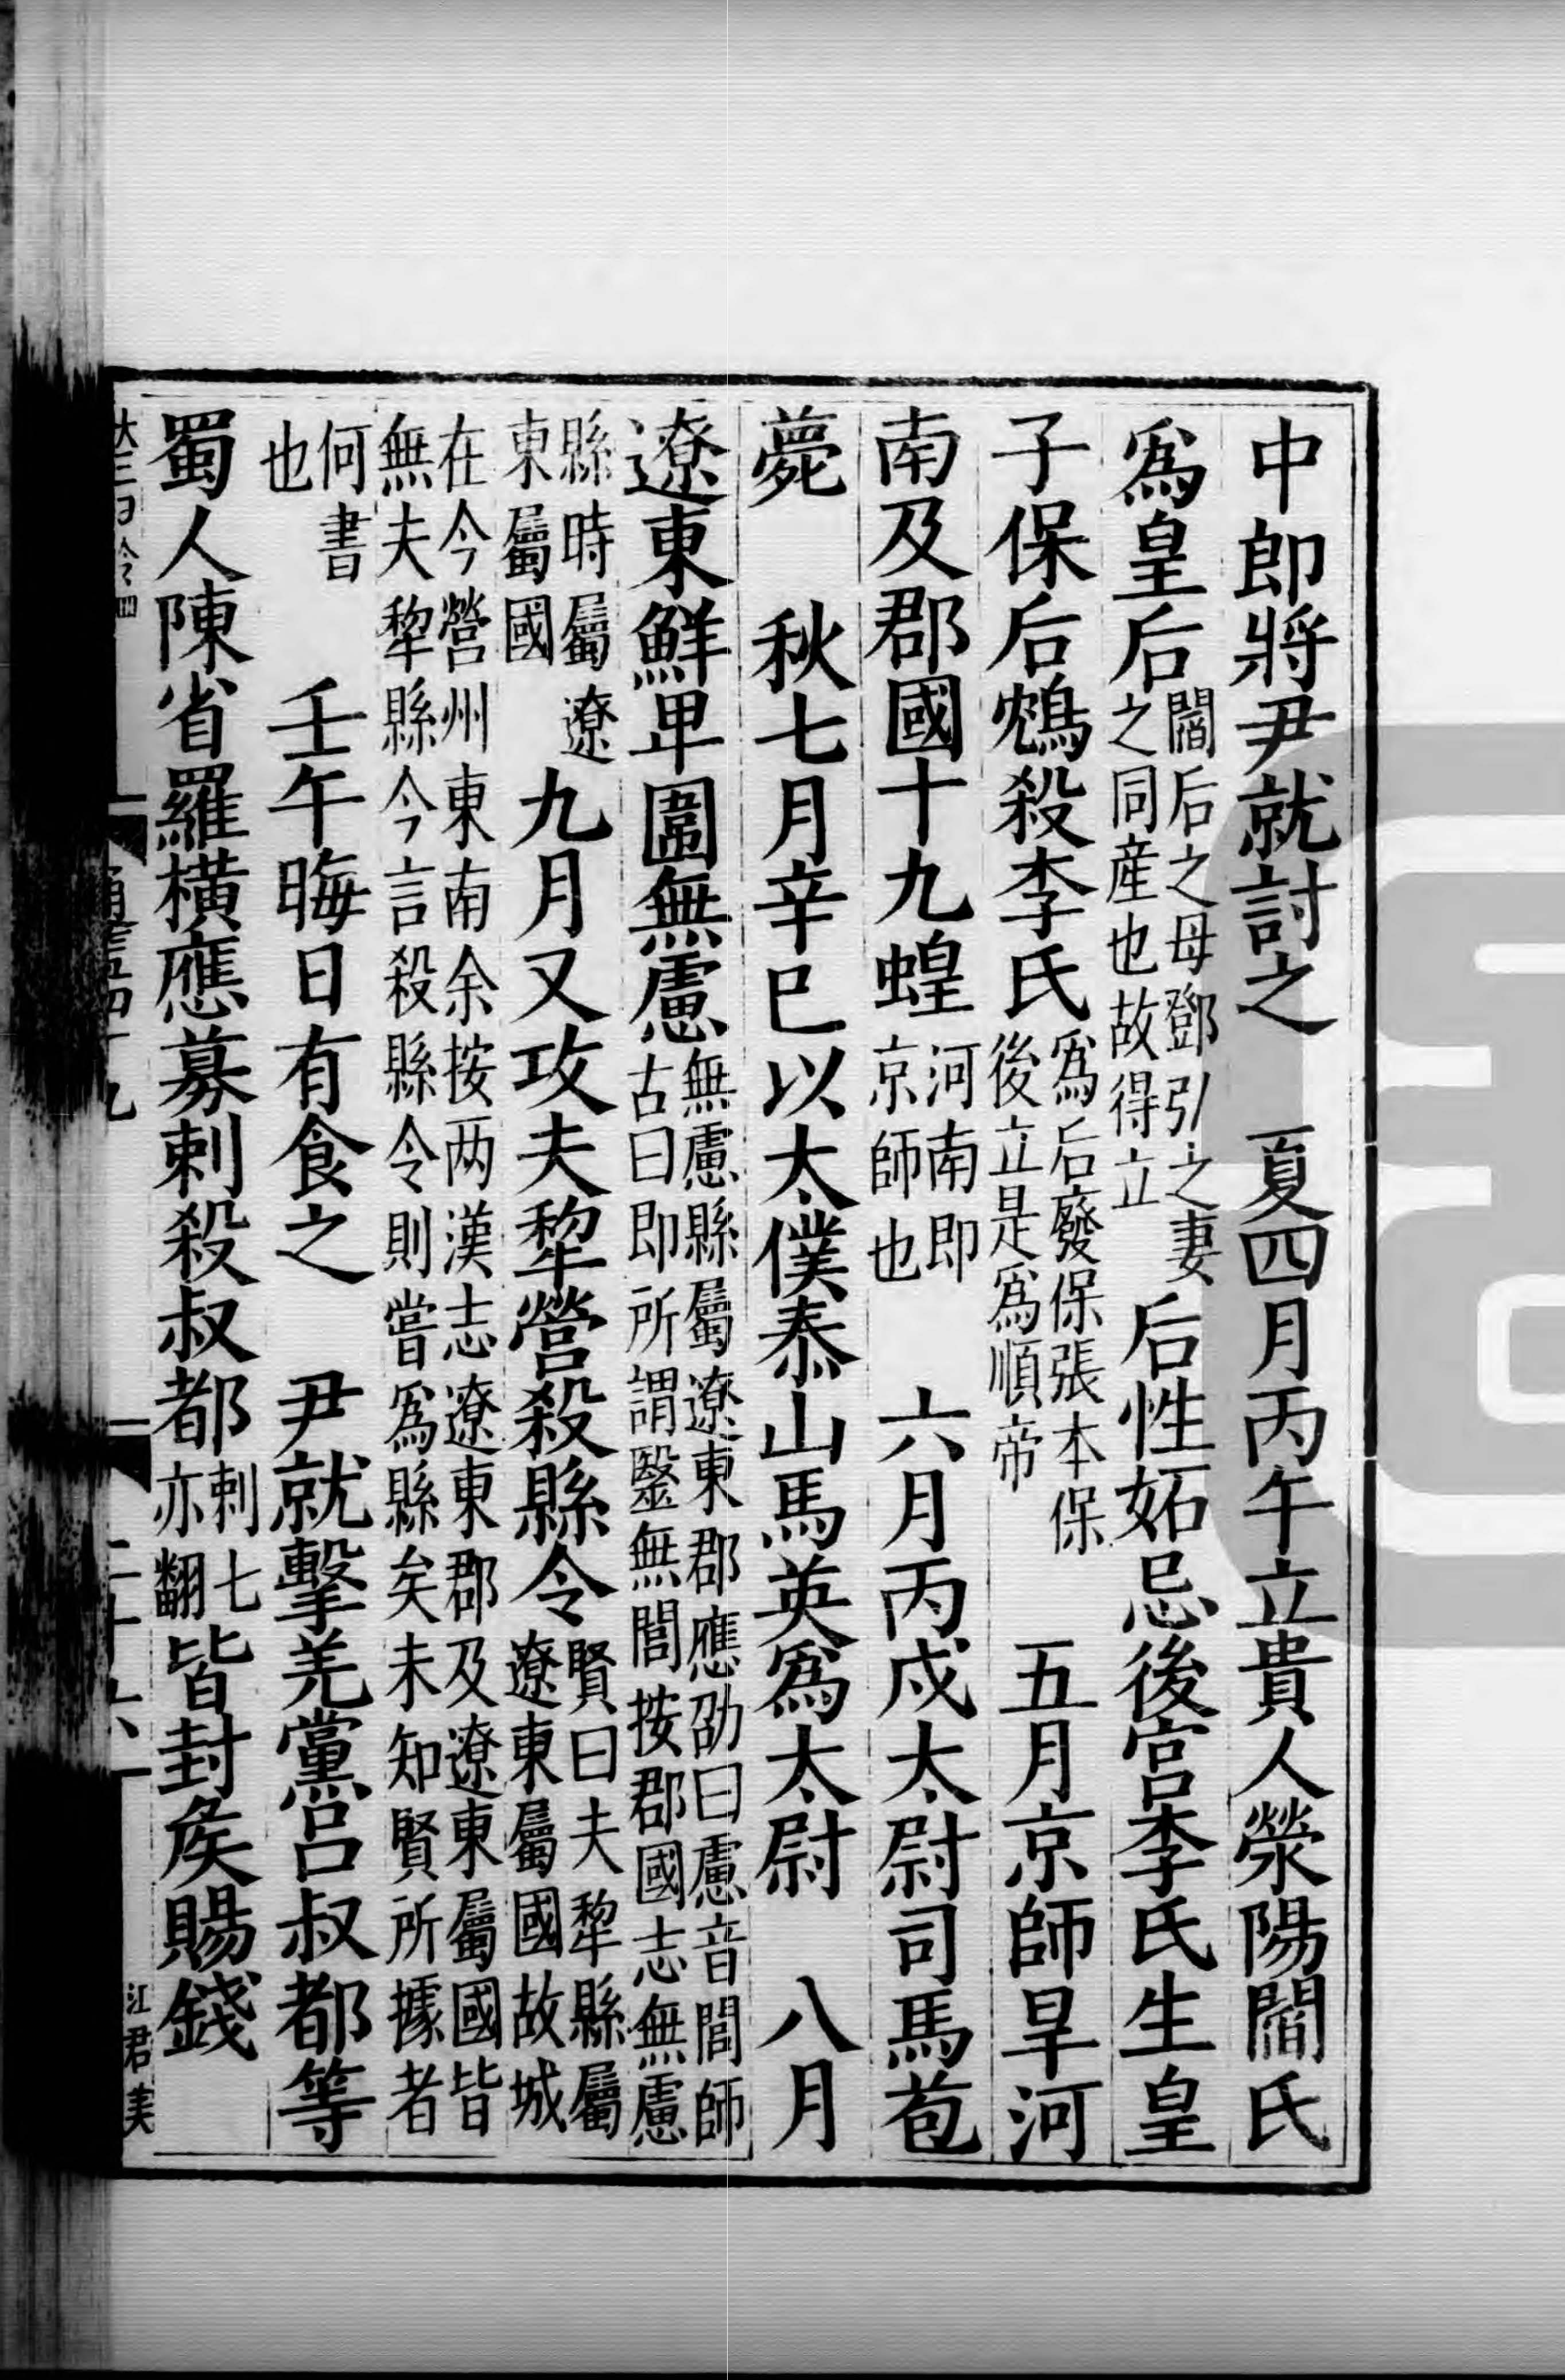 中郎將尹就討之　夏四月丙午立貴人滎陽閻氏
爲皇后閻后之母鄧引之妻之同産也故得立后性妬忌後宮李氏生皇
子保后鴆殺李氏爲后廢保張本保後立是爲順帝　五月京師旱河
南及郡國十九蝗河南即京師也　六月丙戌太尉司馬苞
薨　秋七月辛巳以太僕泰山馬英爲太尉　八月
遼東鮮卑圍無慮無慮縣屬遼東郡應劭曰慮音閭師古曰即所謂毉無閭按郡國志無慮
縣時屬遼東屬國九月又攻夫犂營殺縣令賢曰夫犂縣屬遼東屬國故城
在今營州東南余按两漢志遼東郡及遼東屬國皆無夫犂縣今言殺縣令則嘗爲縣矣未知賢所據者
何書也　壬午晦日有食之　尹就擊羌黨呂叔都等
蜀人陳省羅橫應募刺殺叔都刺七亦翻皆封矦賜錢
江君美